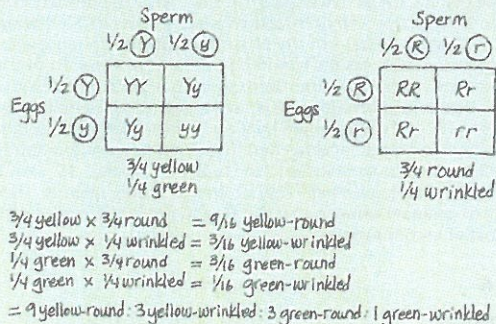 Sperm
1/2 Y 1/2 y
1/2 Y YY Yy
Eggs
1/2 y Yy yy
3/4 yellow
1/4 green
Sperm
1/2 R 1/2 r
1/2 R RR Rr
Eggs
1/2 r Rr rr
3/4 round
1/4 wrinkled
3/4 yellow x 3/4 round = 9/16 yellow-round
3/4 yellow x 1/4 wrinkled = 3/16 yellow-wrinkled
1/4 green x 3/4 round = 3/16 green-round
1/4 green x 1/4 wrinkled = 1/16 green-wrinkled
= 9 yellow-round : 3 yellow-wrinkled : 3 green-round : 1 green-wrinkled